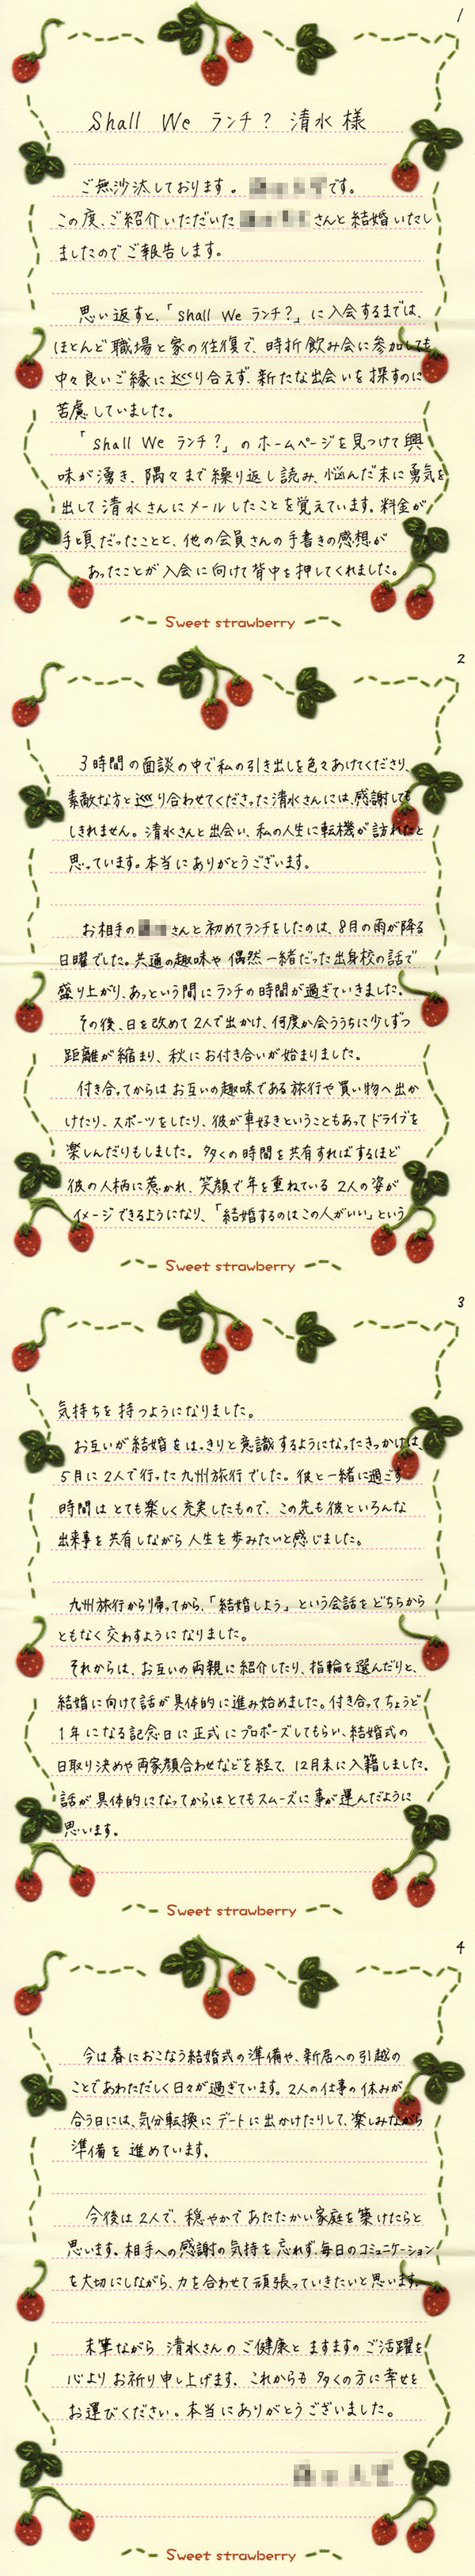 1
Shall We ランチ? 清水様
ご無沙汰しております。 です。
この度、ご紹介いただいた さんと結婚いたし
ましたのでご報告します。
思い返すと、「shall We ランチ?」に入会するまでは、
ほとんど職場と家の往復で、時折飲み会に参加しても
中々良いご縁に巡り合えず、新たな出会いを探すのに
苦慮していました。
「shall We ランチ?」のホームページを見つけて興
味が湧き、隅々まで繰り返し読み、悩んだ末に勇気を
出して清水さんにメールしたことを覚えています。料金が
手頃だったことと、他の会員さんの手書きの感想が
あったことが入会に向けて背中を押してくれました。
Sweet strawberry
2
3時間の面談の中で私の引き出しを色々あけてくださり、
素敵な方と巡り合わせてくださった清水さんには、感謝しても
しきれません。清水さんと出会い、私の人生に転機が訪れたと
思っています。本当にありがとうございます。
お相手の さんと初めてランチをしたのは、8月の雨が降る
日曜でした。共通の趣味や偶然一緒だった出身校の話で
盛り上がり、あっという間にランチの時間が過ぎていきました。
その後、日を改めて2人で出かけ、何度か会ううちに少しずつ
距離が縮まり、秋にお付き合いが始まりました。
付き合ってからはお互いの趣味である旅行や買い物へ出か
けたり、スポーツをしたり、彼が車好きということもあってドライブを
楽しんだりもしました。多くの時間を共有すればするほど
彼の人柄に惹かれ、笑顔で年を重ねている2人の姿が
イメージできるようになり、「結婚するのはこの人がいい」という
Sweet strawberry
3
気持ちを持つようになりました。
お互いが結婚をはっきりと意識するようになったきっかけは、
5月に2人で行った九州旅行でした。彼と一緒に過ごす
時間はとても楽しく充実したもので、この先も彼といろんな
出来事を共有しながら人生を歩みたいと感じました。
九州旅行から帰ってから、「結婚しよう」という会話をどちらから
ともなく交わすようになりました。
それからは、お互いの両親に紹介したり、指輪を選んだりと、
結婚に向けて話が具体的に進み始めました。付き合ってちょうど
1年になる記念日に正式にプロポーズしてもらい、結婚式の
日取り決めや両家顔合わせなどを経て、12月末に入籍しました。
話が具体的になってからはとてもスムーズに事が運んだように
思います。
Sweet strawberry
4
今は春におこなう結婚式の準備や、新居への引越の
ことであわただしく日々が過ぎています。2人の仕事の休みが
合う日には、気分転換にデートに出かけたりして、楽しみながら
準備を進めています。
今後は2人で、穏やかであたたかい家庭を築けたらと
思います。相手への感謝の気持を忘れず、毎日のコミュニケーション
を大切にしながら、力を合わせて頑張っていきたいと思います。
末筆ながら 清水さんのご健康とますますのご活躍を
心よりお祈り申し上げます。これからも多くの方に幸せを
お運びください。本当にありがとうございました。
Sweet strawberry